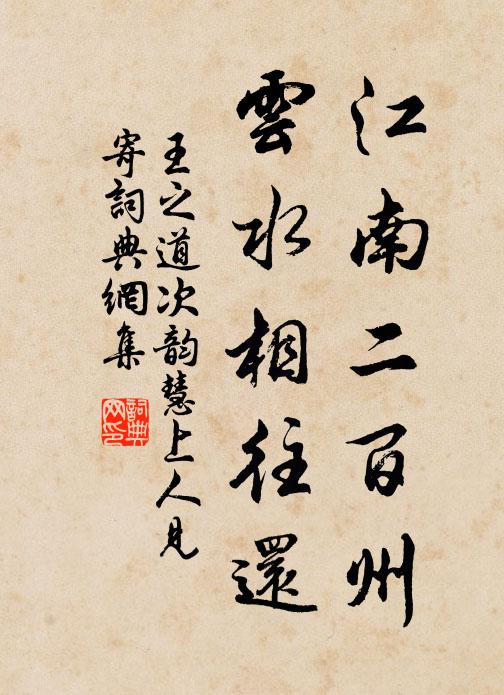 江南二百州
雲水相往還
王之道次韵慧上人見
寄詞典網集
詞典网印